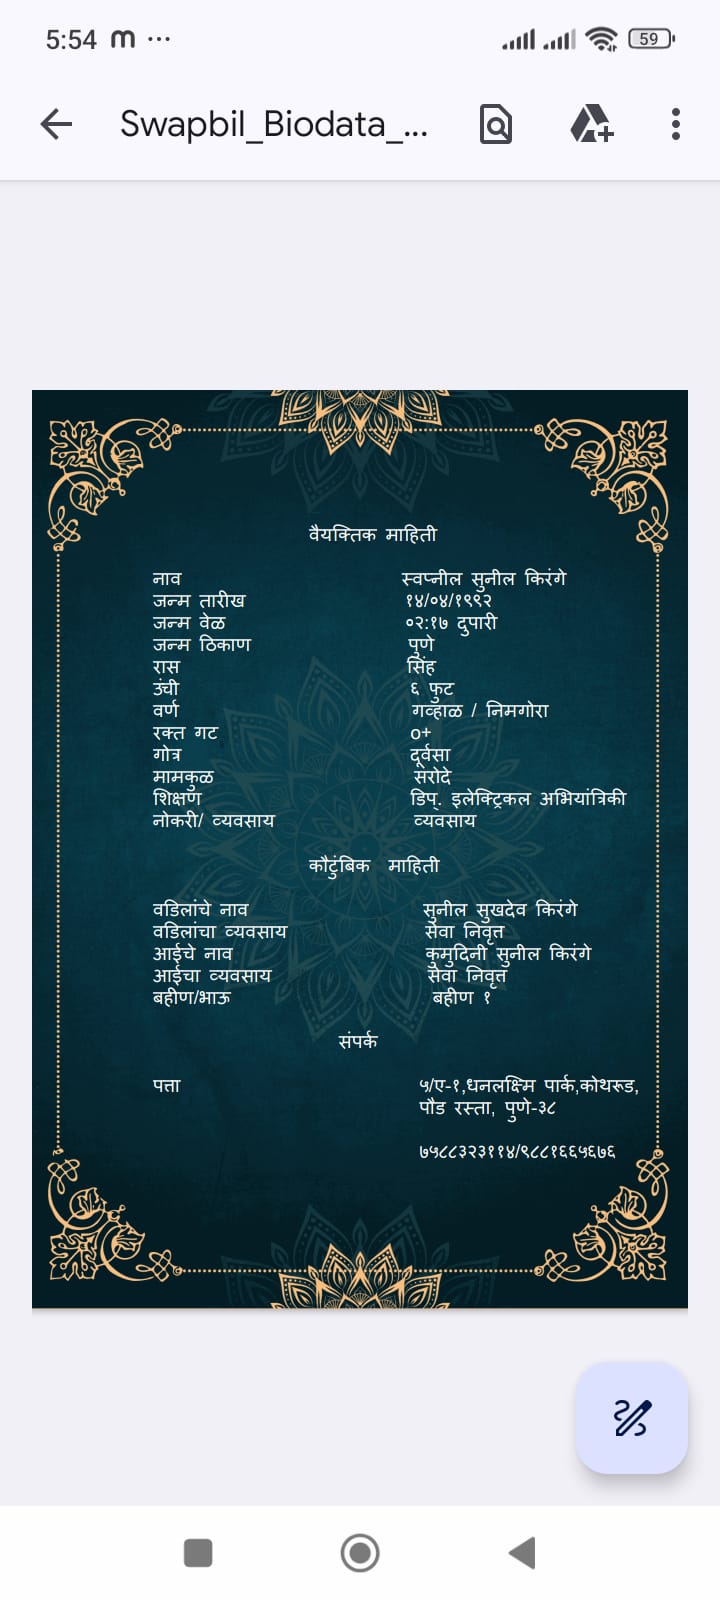 5:54 m ...
59
Swapbil_Biodata_...
वैयक्तिक माहिती
नाव स्वप्नील सुनील किरंगे
जन्म तारीख १४/०४/१९९२
जन्म वेळ ०२:१७ दुपारी
जन्म ठिकाण पुणे
रास सिंह
उंची ६ फुट
वर्ण गव्हाळ / निमगोरा
रक्त गट o+
गोत्र दूर्वसा
मामकुळ सरोदे
शिक्षण डिप्. इलेक्ट्रिकल अभियांत्रिकी
नोकरी/ व्यवसाय व्यवसाय
कौटुंबिक माहिती
वडिलांचे नाव सुनील सुखदेव किरंगे
वडिलांचा व्यवसाय सेवा निवृत्त
आईचे नाव कुमुदिनी सुनील किरंगे
आईचा व्यवसाय सेवा निवृत्त
बहीण/भाऊ बहीण १
संपर्क
पत्ता ५/ए-१,धनलक्ष्मि पार्क,कोथरूड,
पौड रस्ता, पुणे-३८
७५८८३२३११४/९८८१६६५६७६